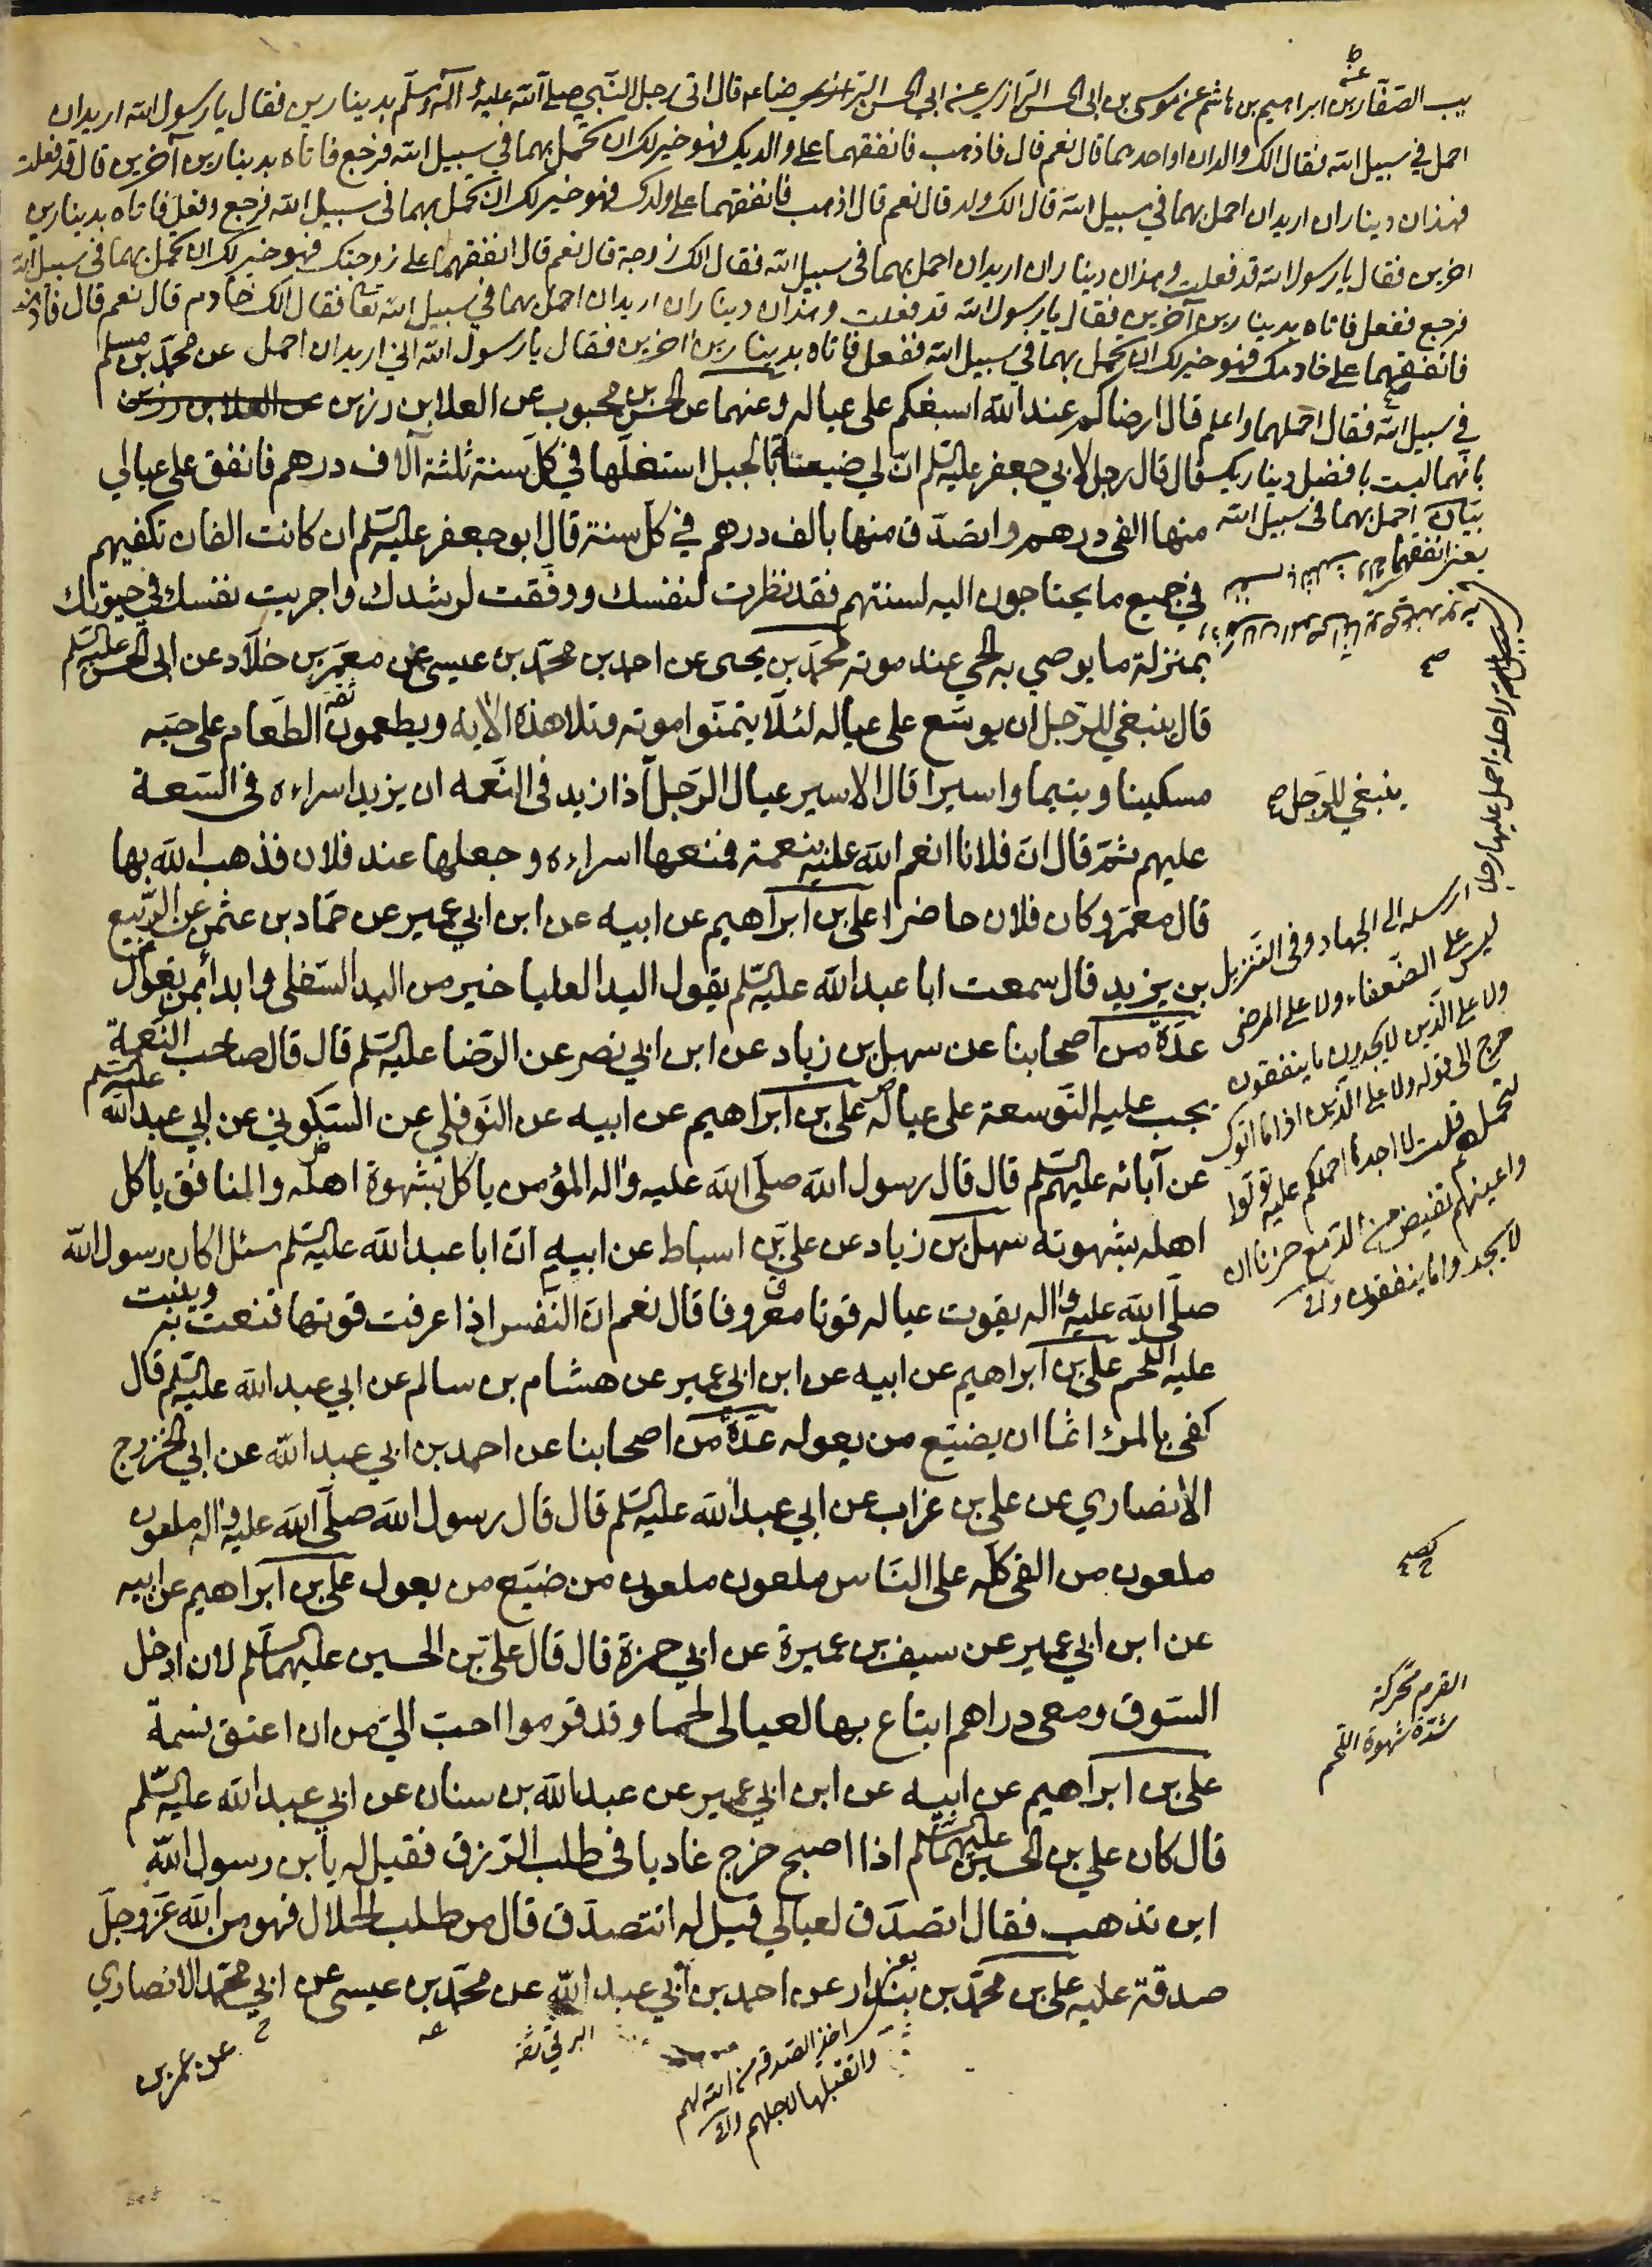 يب الصفار عن ابراهيم بن هاشم عن موسى بن ابى الحسن الرازي عن ابي الحسن الرضا ع قال اتى رجل النبي صلى الله عليه وآله وسلم بدينارين فقال يا رسول الله اريد ان
احمل في سبيل الله فقال الك والدان او احدهما قال نعم قال فاذهب فانفقهما على والديك فهو خير لك ان تحمل بهما في سبيل الله فرجع فاتاه بدينارين آخرين قال قد فعلت
فهذان ديناران اريد ان احمل بهما في سبيل الله قال الك ولد قال نعم قال اذهب فانفقهما على ولدك فهو خير لك ان تحمل بهما فى سبيل الله فرجع وفعل فاتاه بدينارين
اخرين فقال يا رسول الله قد فعلت وهذان ديناران اريد ان احمل بهما فى سبيل الله فقال الك زوجة قال نعم قال انفقهما على زوجتك فهو خير لك ان تحمل بهما فى سبيل الله
فرجع ففعل فاتاه بدينارين آخرين فقال يا رسول الله قد فعلت وهذان ديناران اريد ان احمل بهما في سبيل الله تعا فقال الك خادم قال نعم قال فاذهب
فانفقهما على خادمك فهو خير لك ان تحمل بهما في سبيل الله ففعل فاتاه بدينارين اخرين فقال يا رسول الله اني اريد ان احمل
في سبيل الله فقال احملهما واعلم
بانهما ليست بافضل ديناريك
عن محمد بن مسلم
قال ارضاكم عند الله اسبغكم على عياله وعنهما عن الحسن بن محبوب عن العلا بن رزين عن العلا بن رزين
قال قال رجل لابي جعفر عليه السلم ان لي ضيعة بالجبل استغلها في كل سنة ثلثة آلاف درهم فانفق على عيالي
منها الفى درهم واتصدق منها بالف درهم في كل سنة قال ابو جعفر عليه السلم ان كانت الفان تكفيهم
في جميع ما يحتاجون اليه لسنتهم فقد نظرت لنفسك ووفقت لرشدك واجريت نفسك في حيوتك
بمنزلة ما يوصي به الحي عند موته محمد بن يحيى عن احمد بن محمد بن عيسى عن معمر بن خلاد عن ابى الحسن عليه السلم
قال ينبغي للرجل ان يوسع على عياله لئلا يتمنوا موته وتلا هذه الاية ويطعمون الطعام على حبه
مسكينا ويتيما واسيرا قال الاسير عيال الرجل اذا زيد فى النعمة ان يزيد اسراءه فى السعة
عليهم ثم قال ان فلانا انعم الله عليه بنعمة فمنعها اسراءه وجعلها عند فلان فذهب الله بها
قال معمر وكان فلان حاضرا علي بن ابراهيم عن ابيه عن ابن ابي عمير عن حماد بن عثمن عن الربيع
بن يزيد قال سمعت ابا عبد الله عليه السلم يقول اليد العليا خير من اليد السفلى وابدأ بمن تعول
عدة من اصحابنا عن سهل بن زياد عن ابن ابي نصر عن الرضا عليه السلم قال قال صاحب النعمة
يجب عليه التوسعة على عياله علي بن ابراهيم عن ابيه عن النوفلي عن السكوني عن ابي عبد الله عليه السلم
عن آبائه عليهم السلم قال قال رسول الله صلى الله عليه واله المؤمن ياكل بشهوة اهله والمنافق ياكل
اهله بشهوته سهل بن زياد عن علي بن اسباط عن ابيه ان ابا عبد الله عليه السلم سئل اكان رسول الله
صلى الله عليه واله يقوت عياله قوتا معروفا قال نعم ان النفس اذا عرفت قوتها قنعت به ونبت
عليه اللحم علي بن ابراهيم عن ابيه عن ابن ابي عمير عن هشام بن سالم عن ابي عبد الله عليه السلم قال
كفى بالمرء اثما ان يضيع من يعوله عدة من اصحابنا عن احمد بن ابي عبد الله عن ابي الخزرج
الانصاري عن علي بن غراب عن ابي عبد الله عليه السلم قال قال رسول الله صلى الله عليه واله ملعون
ملعون من القى كله على الناس ملعون ملعون من ضيع من يعول علي بن ابراهيم عن ابيه
عن ابن ابي عمير عن سيف بن عميرة عن ابي حمزة قال قال علي بن الحسين عليهما السلم لان ادخل
السوق ومعى دراهم ابتاع بها لعيالى لحما وقد قرموا احب الي من ان اعتق نسمة
علي بن ابراهيم عن ابيه عن ابن ابي عمير عن عبد الله بن سنان عن ابي عبد الله عليه السلم
قال كان علي بن الحسين عليهما السلم اذا اصبح خرج غاديا فى طلب الرزق فقيل له يا بن رسول الله
اين تذهب فقال اتصدق لعيالي قيل له اتتصدق قال من طلب الحلال فهو من الله عز وجل
صدقة عليه علي بن محمد بن بندار عن احمد بن ابي عبد الله عن محمد بن عيسى عن ابي محمد الانصاري
عن عمر بن
بيان احمل بهما فى سبيل الله
يعنى انفقهما
سبيل الله راحلة احمل عليها رجلا
ارسله الى الجهاد وفى التنزيل
ليس على الضعفاء ولا على المرضى
ولا على الذين لا يجدون ما ينفقون
حرج الى قوله ولا على الذين اذا ما اتوك
لتحملهم قلت لا اجد ما احملكم عليه تولوا
واعينهم تفيض من الدمع حزنا ان
لا يجدوا ما ينفقون
ينبغي للرجل
القرم محركة
شدة شهوة اللحم
ثقة
البرقي ثقة
يعنى
اخذ الصدقة من الله لهم
واتقبلها لاجلهم